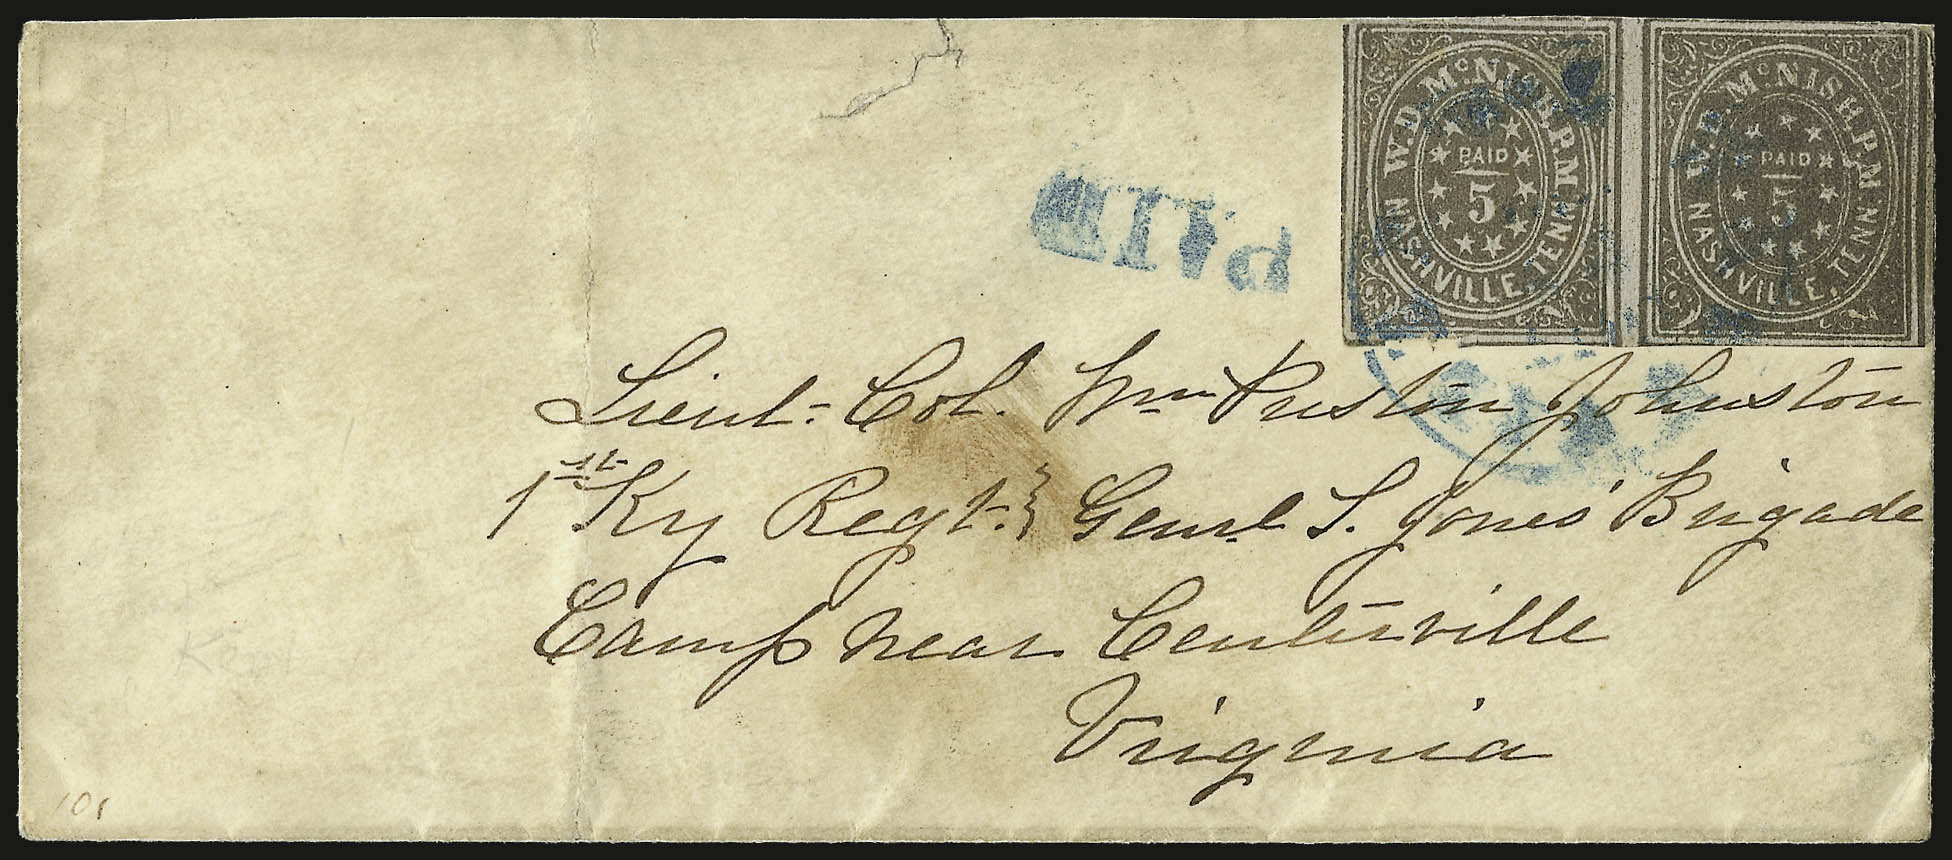 W. D. McNISH. P.M. NASHVILLE, TENN.
PAID
5
W. D. McNISH. P.M. NASHVILLE, TENN.
PAID
5
PAID
Lieut- Col. Wm Preston Johnston
1st Ky Regt. } Genrl S. Jones' Brigade
Camp near Centerville
Virginia
101